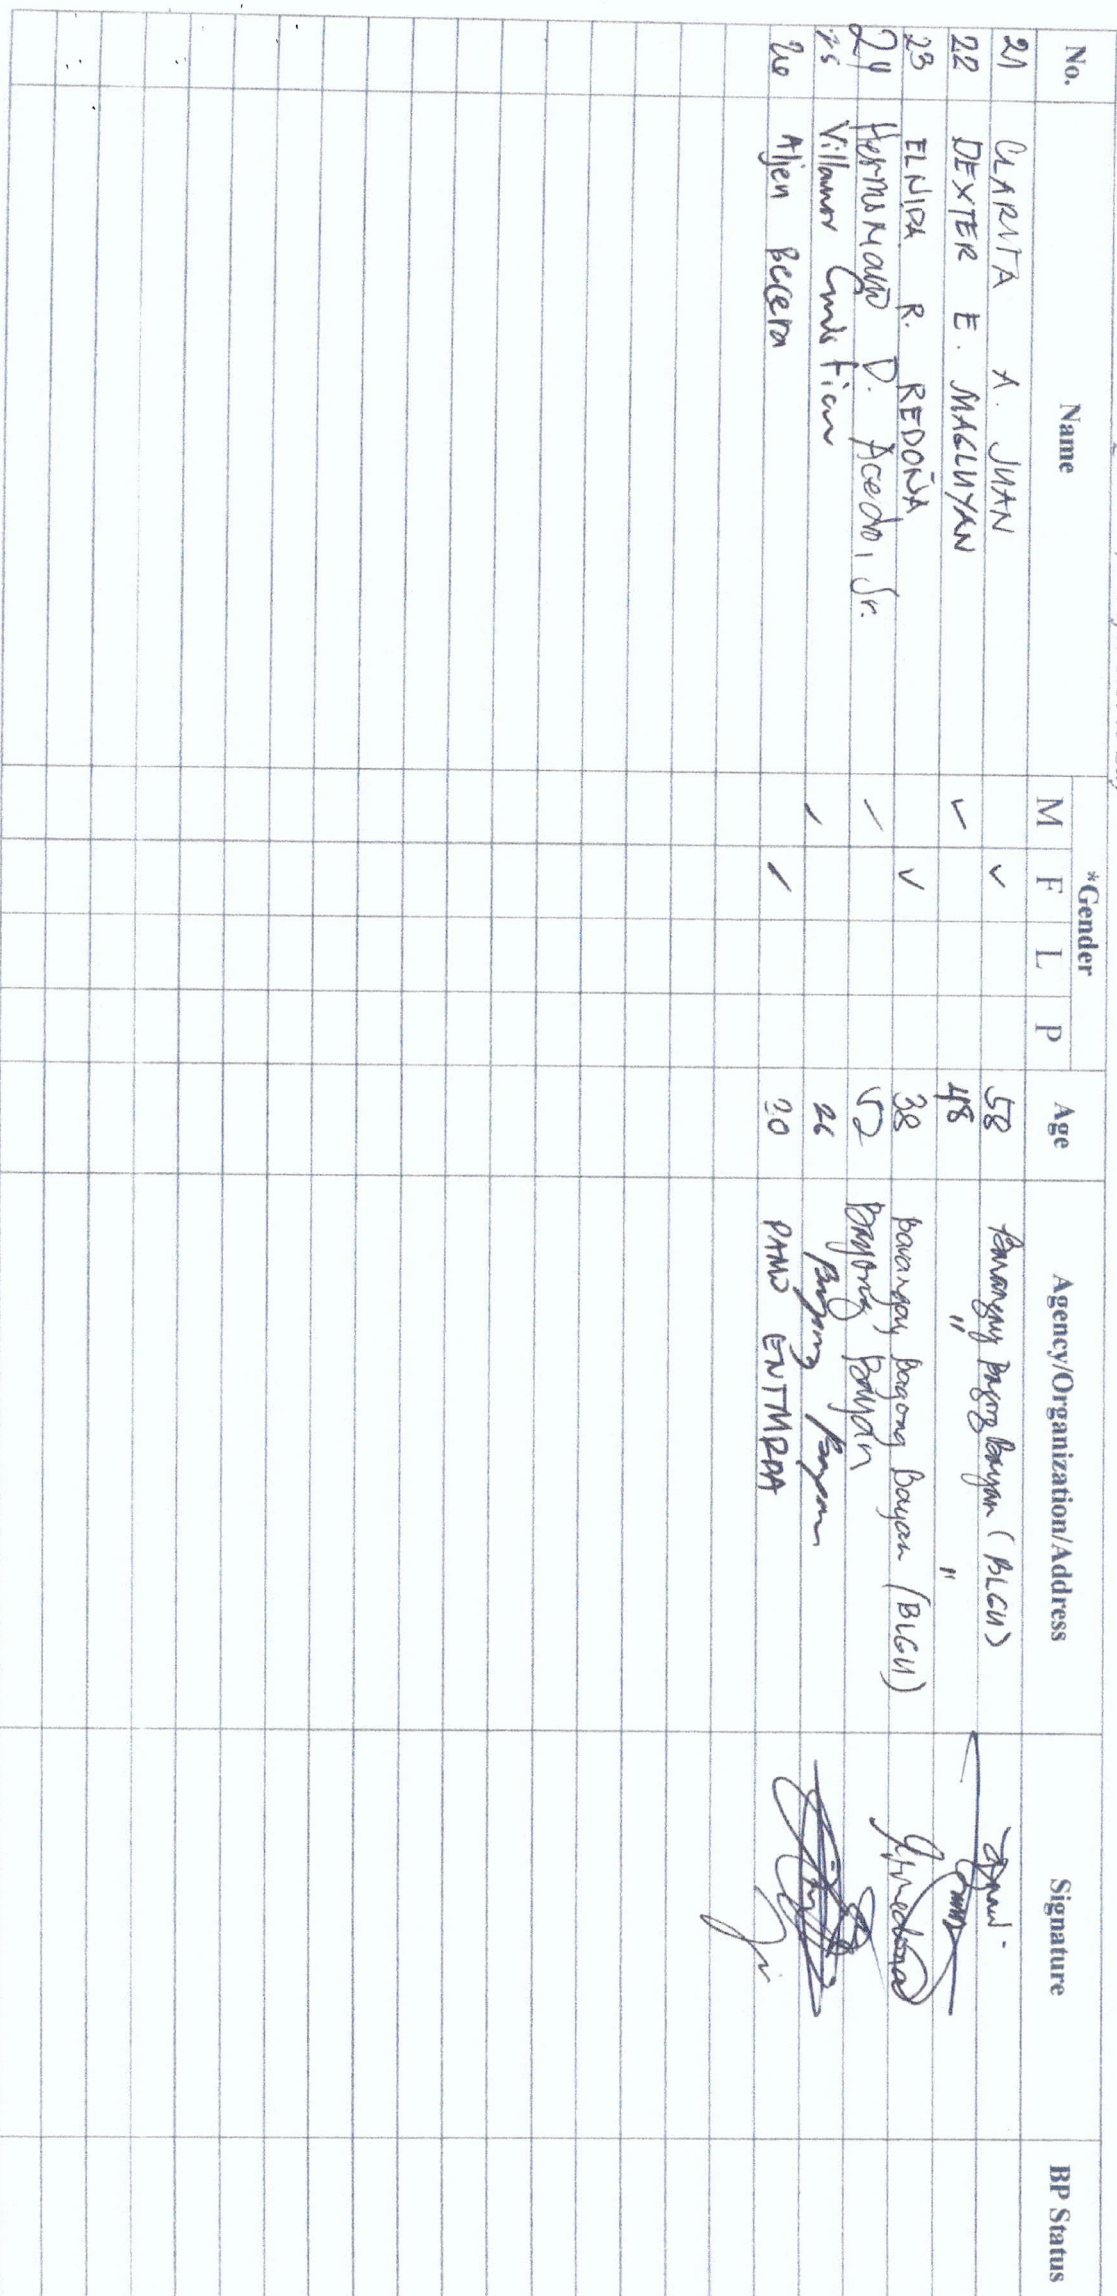 No. Name *Gender Age Agency/Organization/Address Signature BP Status
M F L P
21 CLARITA A. JUAN ✓ 58 Barangay Bagong Bayan (BLGU)
22 DEXTER E. MAGLUYAN ✓ 48 " "
23 ELNIDA R. REDOÑA ✓ 38 barangay bagong Bayan (BLGU)
24 D. Acedo, Sr. / 52 Bagong Bayan
25 Villamor / 26 Bagong Bayan
26 Aljen Becera / 30 PAMO ENTMRPA